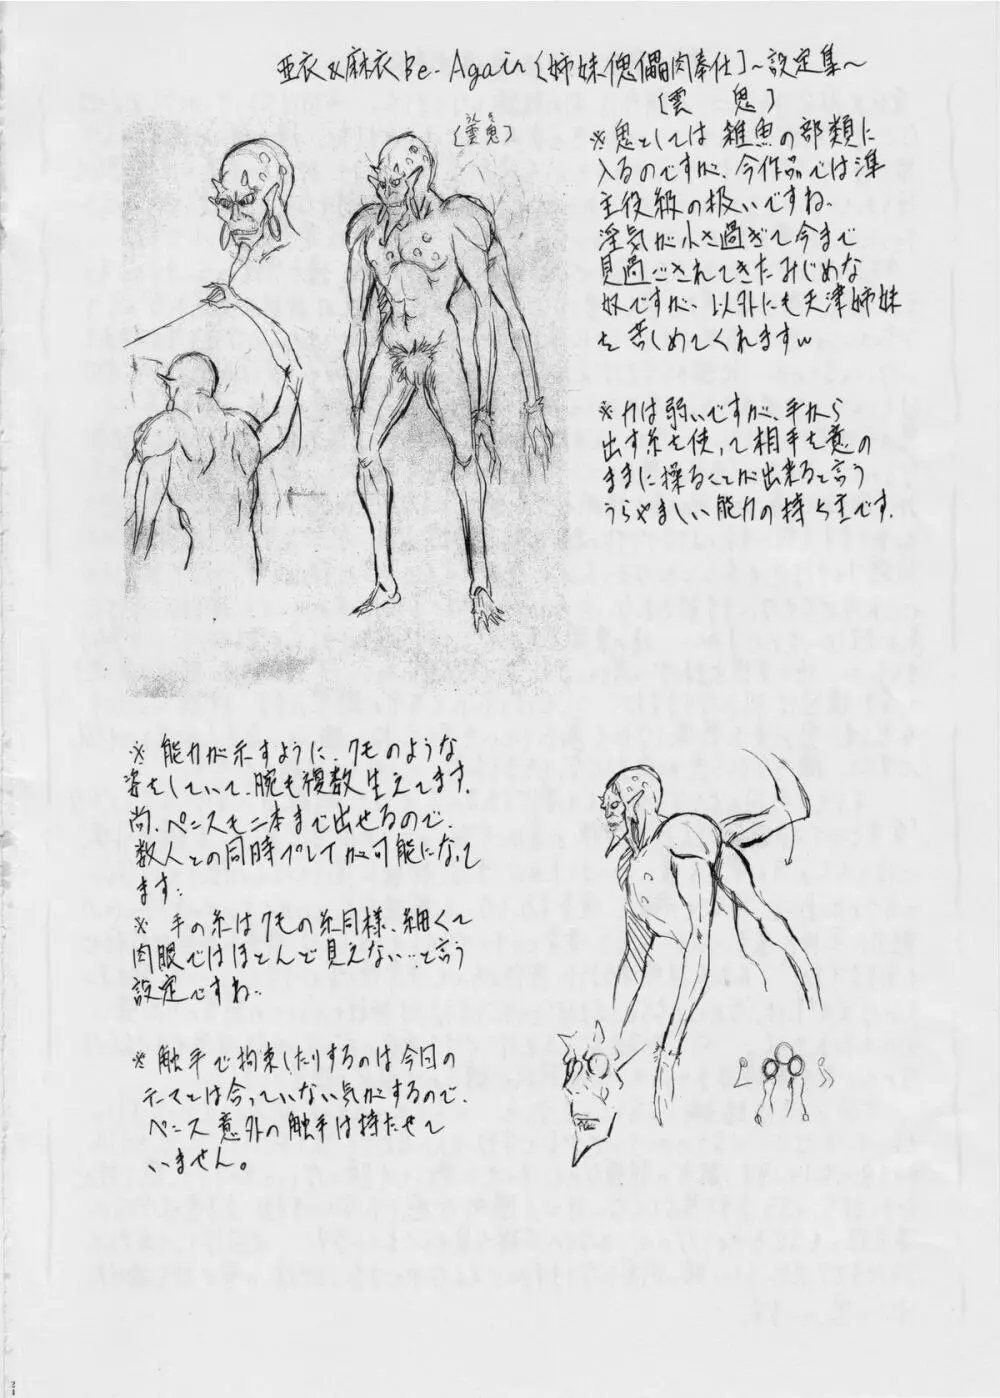 亜衣&麻衣 Be-Again〔姉妹傀儡肉奉仕〕～設定集～
〔雲鬼〕
〔雲鬼〕
※鬼としては雑魚の部類に
入るのですが、今作品では準
主役級の扱いですね。
淫気が小さ過ぎて今まで
見過ごされてきたみじめな
奴ですが、以外にも天津姉妹
を苦しめてくれますw
※力は弱いですが、手から
出す糸を使って相手を意の
ままに操ることが出来ると言う
うらやましい能力の持ち主です.
※ 能力が示すように、クモのような
姿をしていて、腕も複数生えてます.
尚、ペニスも二本まで出せるので、
数人との同時プレイが可能になって
ます.
※ 手の糸はクモの糸同様、細くて
肉眼ではほとんど見えない…と言う
設定ですね..
※ 触手で拘束したりするのは今回の
テーマとは合っていない気がするので、
ペニス意外の触手は持たせて
いません。
21